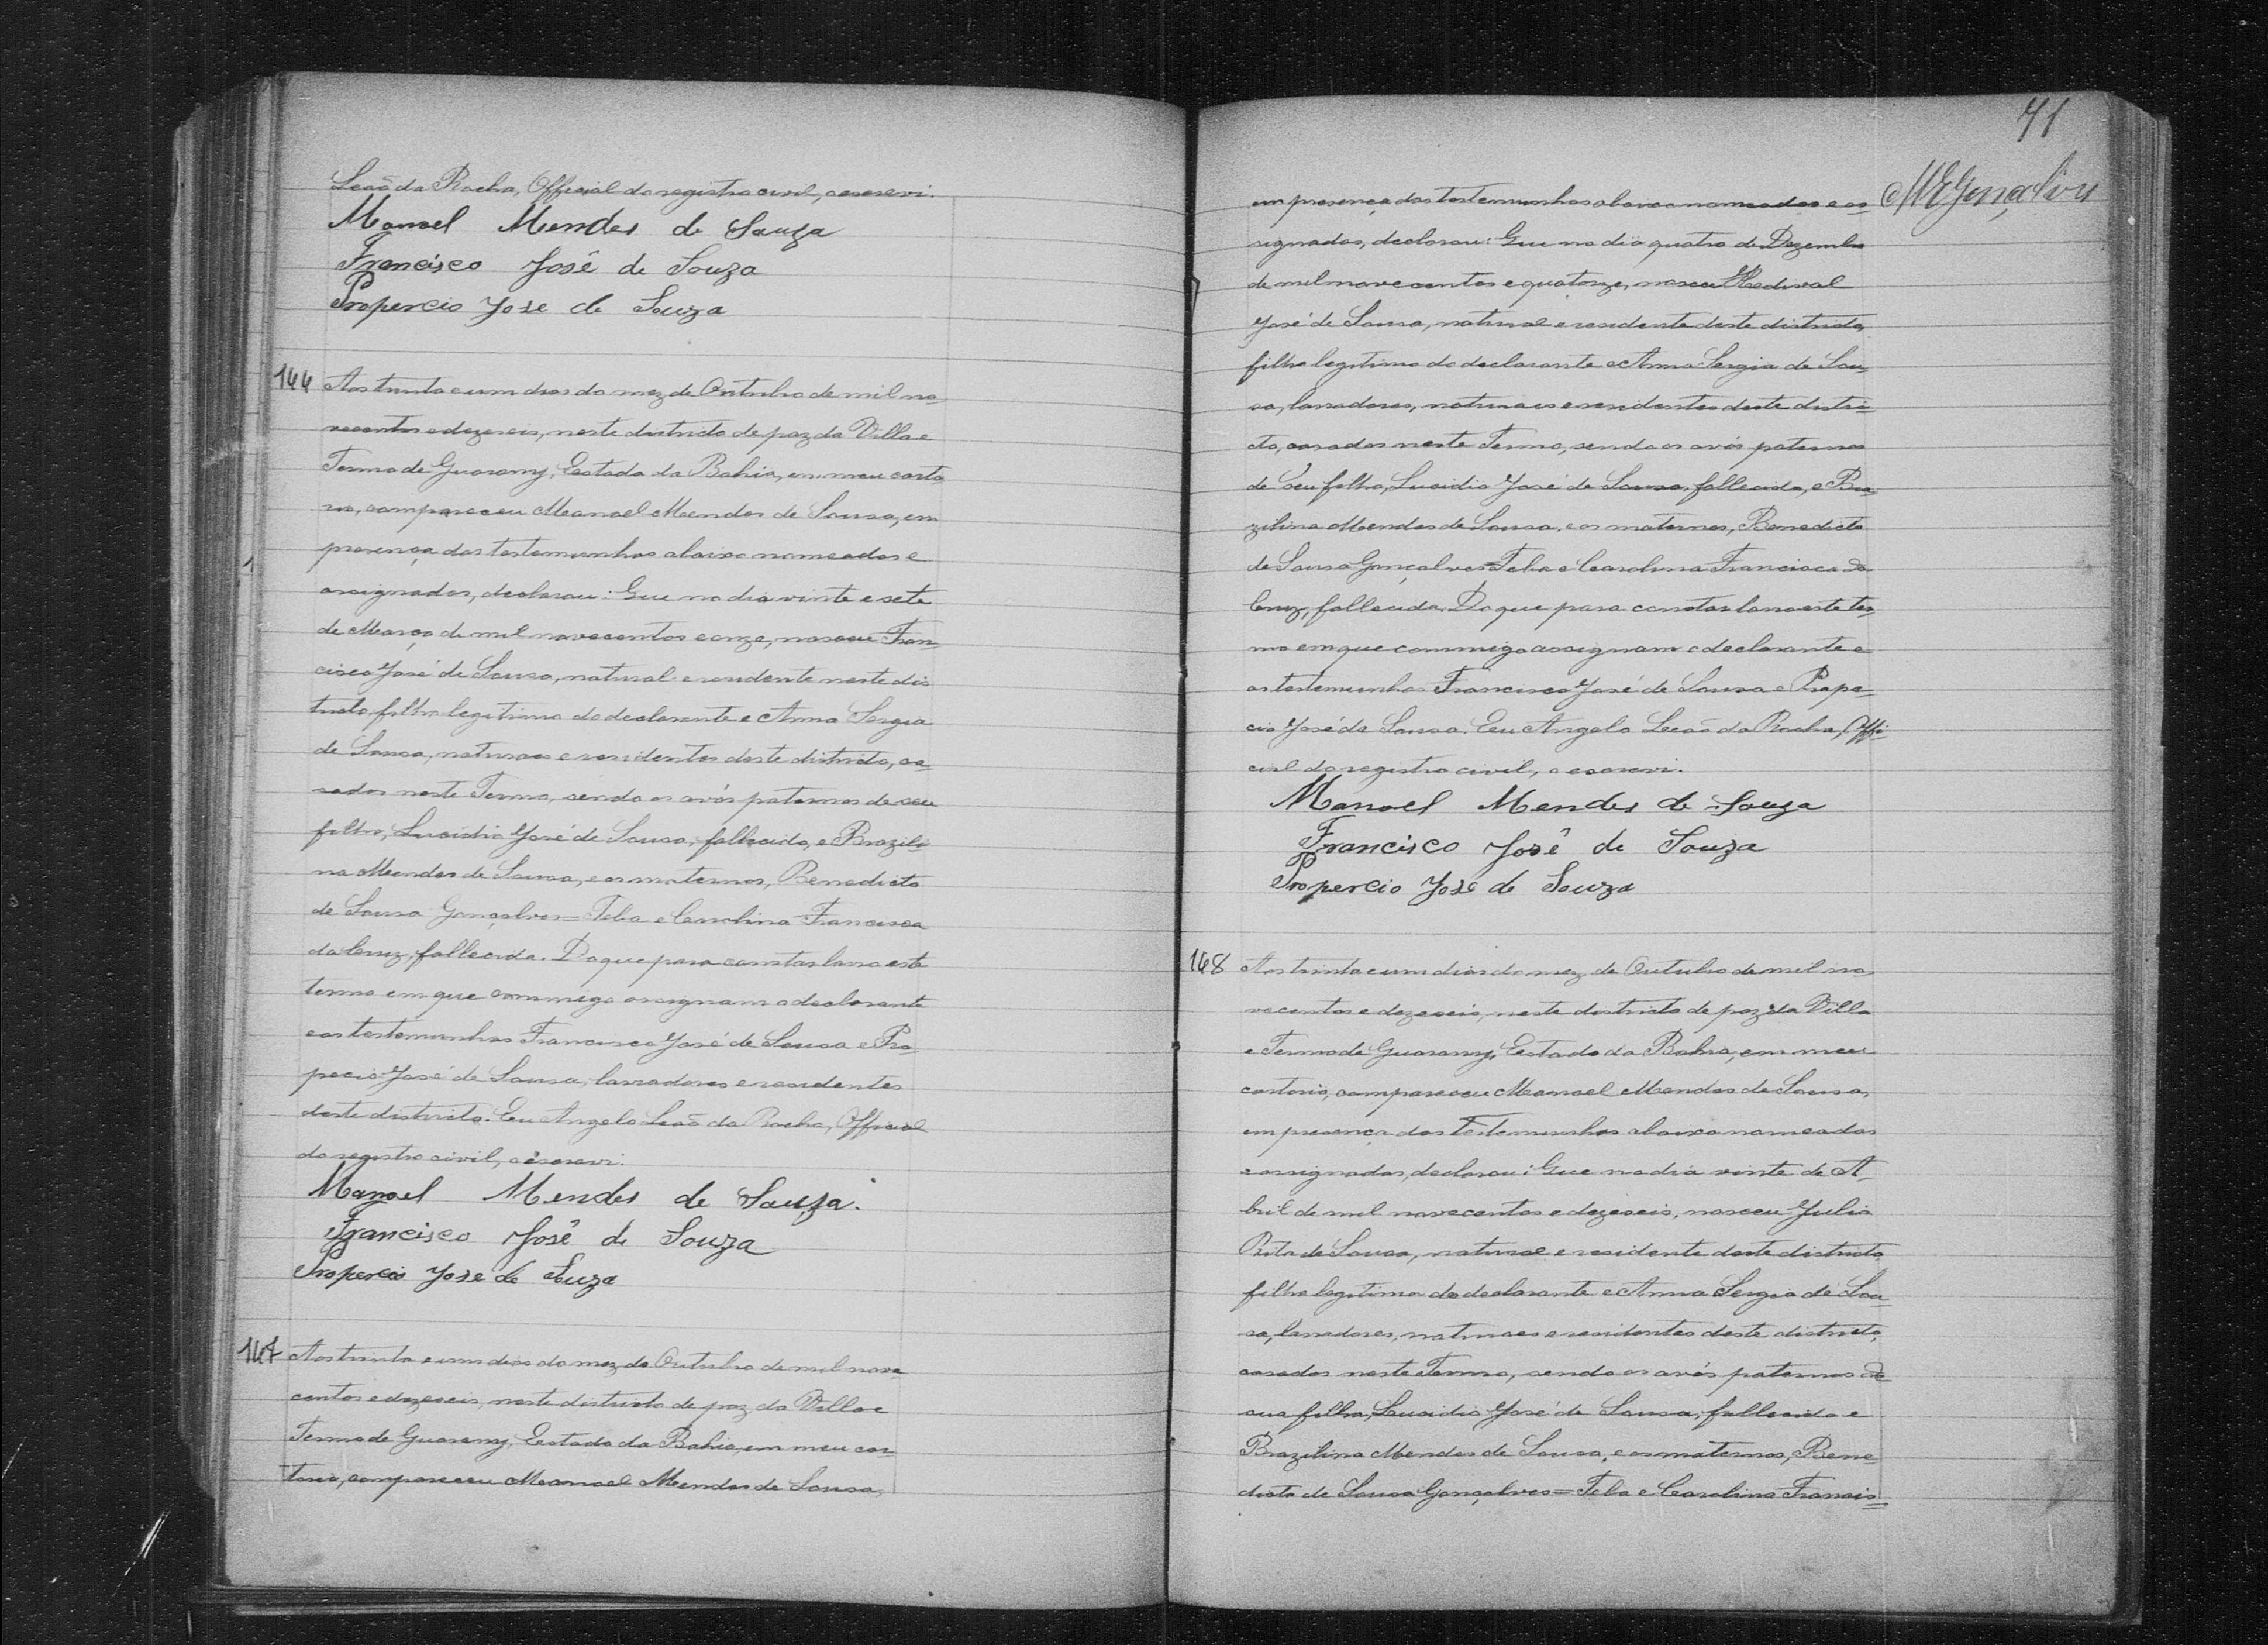 Leão da Rocha, Official do registro civil, o escrevi.
Manoel Mendes de Souza
Francisco José de Souza
Propercio Jose de Souza
146 Aos trinta e um dias do mez de Outubro de mil no-
vecentos e dezeseis, neste districto de paz da Villa e
Termo de Guarany, Estado da Bahia, em meu carto-
rio, compareceu Manoel Mendes de Sousa, em
presença das testemunhas abaixo nomeadas e
assignadas, declarou: Que no dia vinte e sete
de Março de mil novecentos e onze, nasceu Fran-
cisco José de Sousa, natural e residente neste dis
tricto, filho legitimo do declarante e Anna Sergia
de Sousa, naturaes e residentes deste districto, ca-
sados neste Termo, sendo os avós paternos de seu
filho, Lucidio José de Sousa, fallecido, e Brazili
na Mendes de Sousa, e os maternos, Benedicto
de Sousa Gonçalves=Teba e Carolina Francisca
da Cruz, fallecida. Do que para constar lavro este
termo em que commigo assignam o declarante
e as testemunhas Francisco José de Sousa e Pro-
pecio José de Sousa, lavradores e residentes
deste districto. Eu Angelo Leão da Rocha, Official
do registro civil, o escrevi.
Manoel Mendes de Souza.
Francisco José de Souza
Propercio Jose de Souza
147 Aos trinta e um dias do mez de Outubro de mil nove
centos e dezeseis, neste districto de paz da Villa e
Termo de Guarany, Estado da Bahia, em meu car-
torio, compareceu Manoel Mendes de Sousa,
71
em presença das testemunhas abaixo nomeadas e as-
signadas, declarou: Que no dia quatro de Dezembro
de mil novecentos e quatorze, nasceu
José de Sousa, natural e residente deste districto,
filho legitimo do declarante e Anna Sergia de Sou-
sa, lavradores, naturaes e residentes deste distri-
cto, casados neste Termo, sendo os avós paternos
de seu filho, Lucidio José de Sousa, fallecido, e Bra-
zilina Mendes de Sousa, e os maternos, Benedicto
de Sousa Gonçalves=Teba e Carolina Francisca da
Cruz, fallecida. Do que para constar lavro este ter-
mo em que commigo assignam o declarante e
as testemunhas Francisco José de Sousa e Prope-
cio José de Sousa. Eu Angelo Leão da Rocha, Offi-
cial do registro civil, o escrevi.
Manoel Mendes de Souza
Francisco José de Souza
Propercio Jose de Souza
148 Aos trinta e um dias do mez de Outubro de mil no
vecentos e dezeseis, neste districto de paz da Villa
e Termo de Guarany, Estado da Bahia, em meu
cartorio, compareceu Manoel Mendes de Sousa,
em presença das Testemunhas abaixo nomeadas
e assignadas, declarou: Que no dia vinte de A-
bril de mil novecentos e dezeseis, nasceu Julia
Rita de Sousa, natural e residente deste districto,
filha legitima do declarante e Anna Sergia de Sou-
sa, lavradores, naturaes e residentes deste districto,
casados neste Termo, sendo os avós paternos de
sua filha, Lucidio José de Sousa, fallecido e
Brazilina Mendes de Sousa, e os maternos, Bene-
dicto de Sousa Gonçalves=Teba e Carolina Francis-